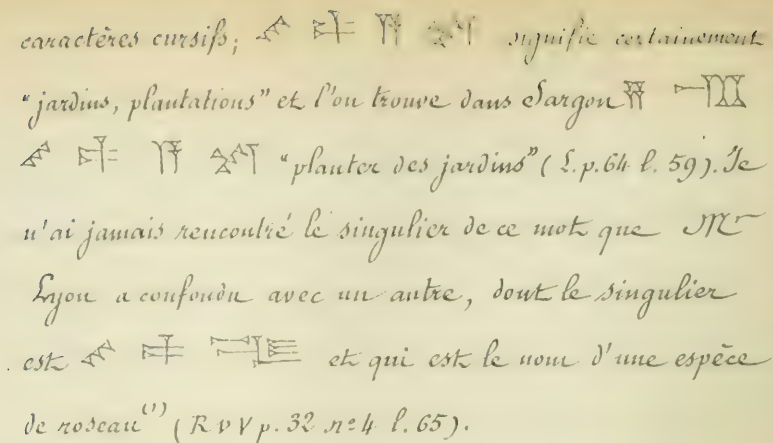 caractères cursifs; signifie certainement
"jardins, plantations" et l'on trouve dans Sargon
"planter des jardins" (L. p. 64 l. 59). Je
n'ai jamais rencontré le singulier de ce mot que Mr
Lyon a confondu avec un autre, dont le singulier
est et qui est le nom d'une espèce
de roseau (1) (R v V p. 32 no 4 l. 65).